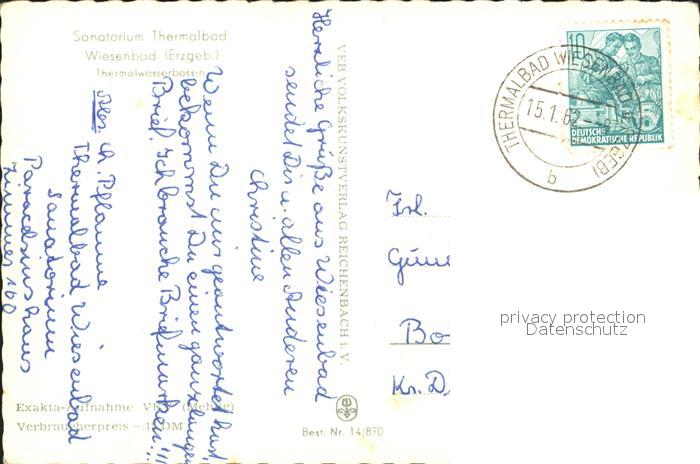 Sanatorium Thermalbad
Wiesenbad (Erzgeb.)
Thermalwasserbassin
Herzliche Grüße aus Wiesenbad
sendet Dir u. allen Anderen
Christine
Wenn Du mir geantwortet hast
bekommst Du einen ganz langen
Brief. Ich brauche Briefmarken!!!
Abs. Ch. Pflamme
Thermalbad Wiesenbad
Sanatorium
Paracelsushaus
Zimmer 160
Exakta-Aufnahme
Verbraucherpreis -.15 DM
VEB VOLKSKUNSTVERLAG REICHENBACH i. V.
Best. Nr. 14/870
THERMALBAD WIESENBAD
15.1.62
b
10
DEUTSCHE
DEMOKRATISCHE REPUBLIK
Frl.
Bo
Kr. D.
privacy protection
Datenschutz